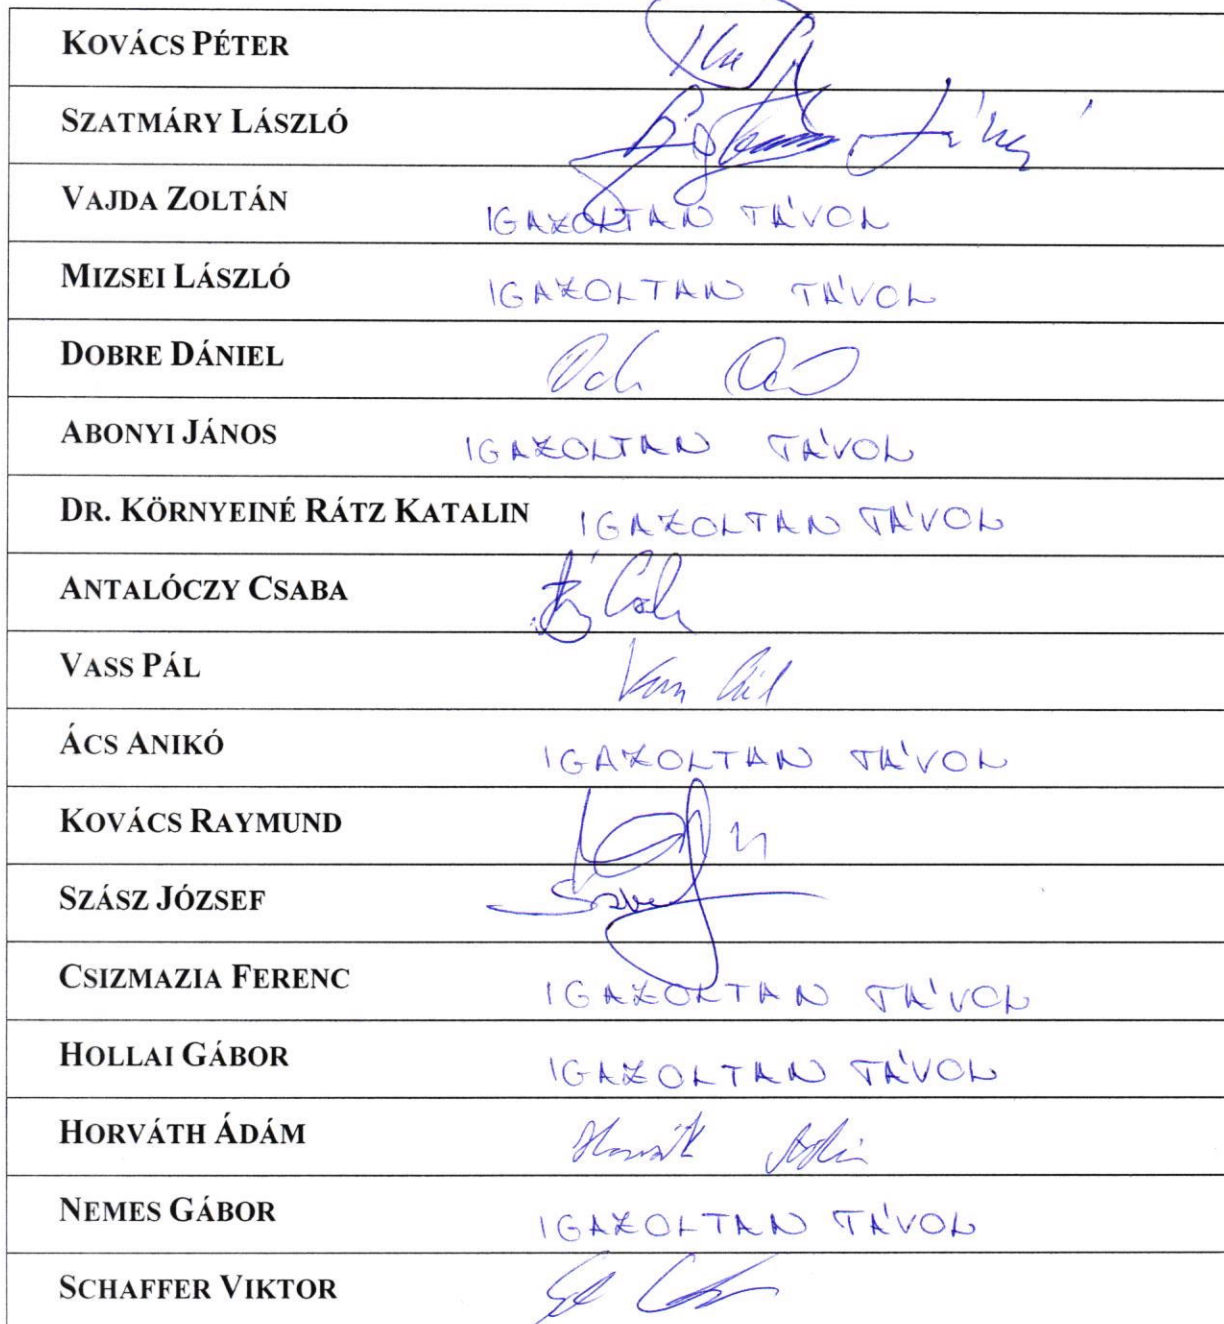 KOVÁCS PÉTER
SZATMÁRY LÁSZLÓ
VAJDA ZOLTÁN IGAZOLTAN TÁVOL
MIZSEI LÁSZLÓ IGAZOLTAN TÁVOL
DOBRE DÁNIEL
ABONYI JÁNOS IGAZOLTAN TÁVOL
DR. KÖRNYEINÉ RÁTZ KATALIN IGAZOLTAN TÁVOL
ANTALÓCZY CSABA
VASS PÁL
ÁCS ANIKÓ IGAZOLTAN TÁVOL
KOVÁCS RAYMUND
SZÁSZ JÓZSEF
CSIZMAZIA FERENC IGAZOLTAN TÁVOL
HOLLAI GÁBOR IGAZOLTAN TÁVOL
HORVÁTH ÁDÁM Horváth Ádám
NEMES GÁBOR IGAZOLTAN TÁVOL
SCHAFFER VIKTOR